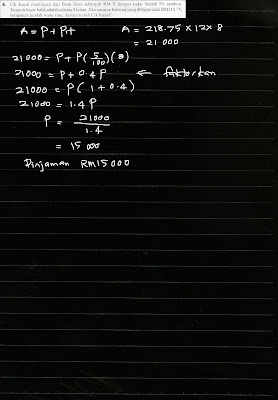 8. Cik Kayal meminjam dari Bank Desa sebanyak RM X dengan kadar faedah 5% setahun.
Tempoh bayar balik adalah selama 8 tahun. Jika ansuran bulanan yang dibayar ialah RM218.75,
berapakah jumlah wang yang dipinjam oleh Cik Kayal?
A = P + Prt
A = 218.75 x 12 x 8
= 21 000
21000 = P + P(5/100)(8)
21000 = P + 0.4P ← faktorkan
21000 = P(1 + 0.4)
21000 = 1.4P
P = 21000/1.4
= 15 000
Pinjaman RM15000